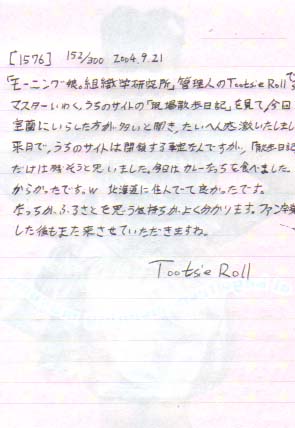 [1576] 152/300 2004.9.21
「モーニング娘。組織学研究所」管理人のTootsie Rollで
マスターいわく、うちのサイトの「現場散歩日記」を見て、今回
室蘭にいらした方が多いと聞き、たいへん感激いたしまし
来月で、うちのサイトは閉鎖する予定なんですが、「散歩日記
だけは残そうと思いました。今日はカレーたちを食べました。
からかったです。w 北海道に住んでて良かったです。
なっちが、ふるさとを思う気持ちが、よく分かります。ファン卒業
した後もまた来させていただきますね。
Tootsie Roll